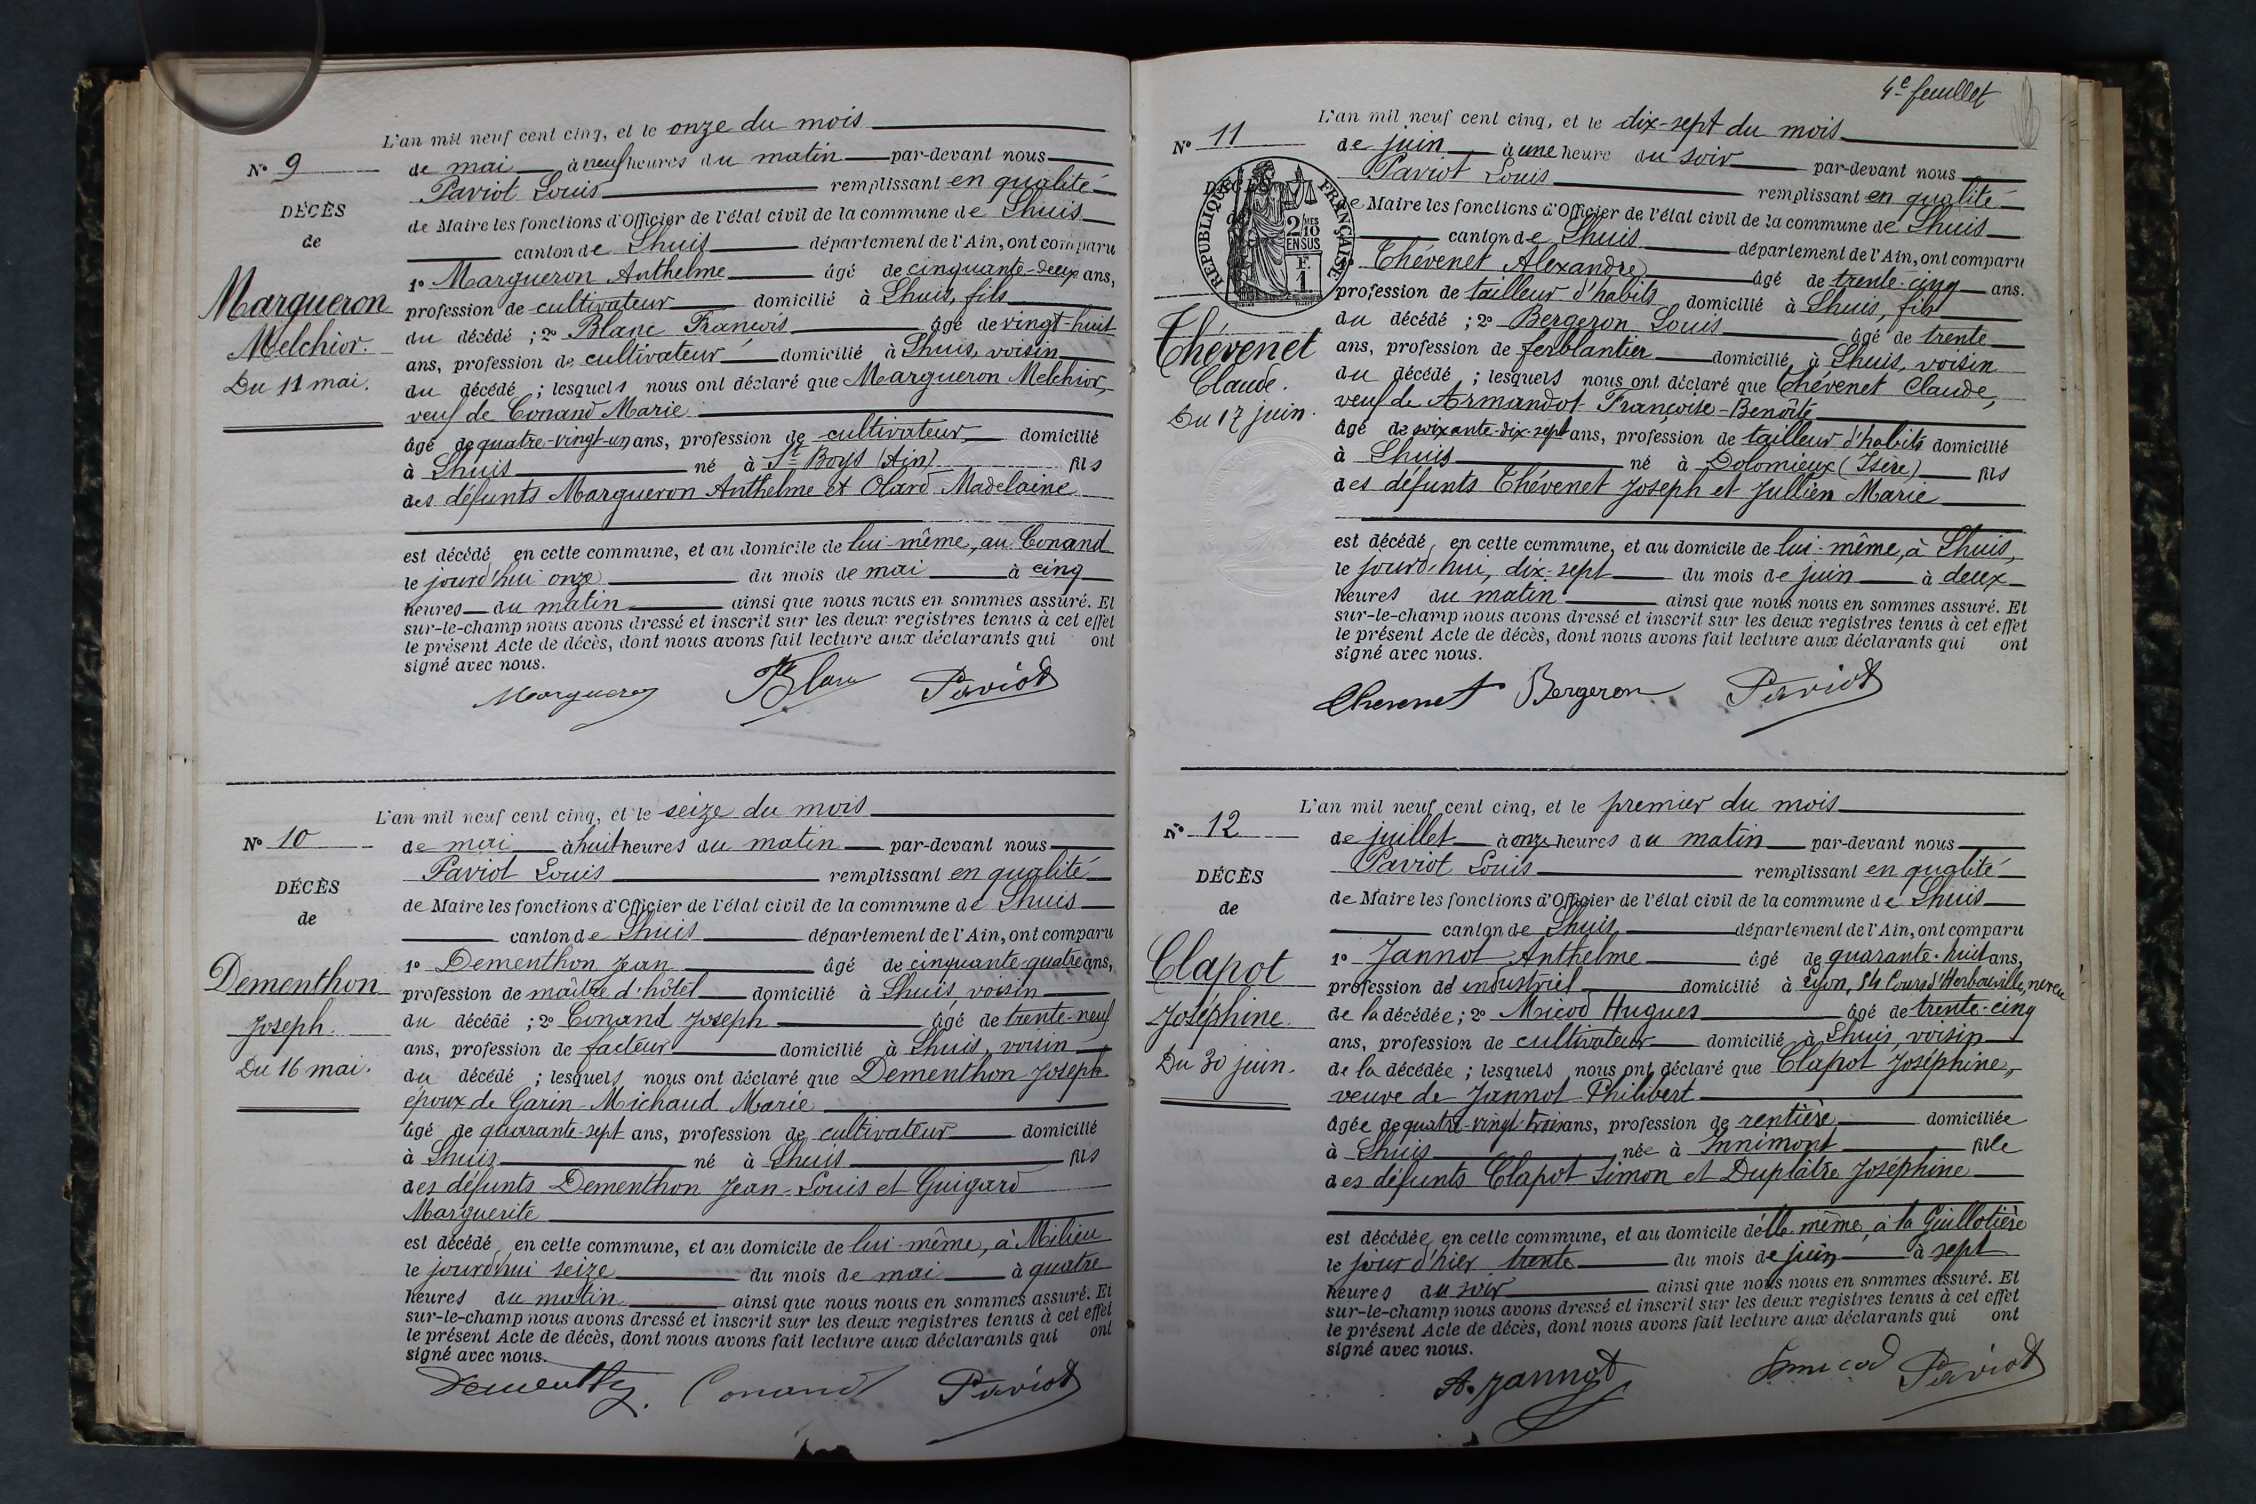 L'an mil neuf cent cinq, et le onze du mois
N° 9
de mai à neuf heures du matin par-devant nous
Paviot Louis remplissant en qualité
DÉCÈS
de Maire les fonctions d'Officier de l'état civil de la commune de Lhuis
de
canton de Lhuis département de l'Ain, ont comparu
1° Margueron Anthelme âgé de cinquante-deux ans,
Margueron
profession de cultivateur domicilié à Lhuis, fils
du décédé ; 2° Blanc François âgé de vingt-huit
Melchior.
ans, profession de cultivateur domicilié à Lhuis, voisin
Du 11 mai.
du décédé ; lesquels nous ont déclaré que Margueron Melchior,
veuf de Conand Marie
âgé de quatre-vingt-un ans, profession de cultivateur domicilié
à Lhuis né à St Boys (Ain) fils
des défunts Margueron Anthelme et Olard Madelaine
est décédé en cette commune, et au domicile de lui-même, au Conand
le jourd'hui onze du mois de mai à cinq
heures du matin ainsi que nous nous en sommes assuré. Et
sur-le-champ nous avons dressé et inscrit sur les deux registres tenus à cet effet
le présent Acte de décès, dont nous avons fait lecture aux déclarants qui ont
signé avec nous.
Margueron Blanc Paviot
L'an mil neuf cent cinq, et le seize du mois
N° 10
de mai à huit heures du matin par-devant nous
Paviot Louis remplissant en qualité
DÉCÈS
de Maire les fonctions d'Officier de l'état civil de la commune de Lhuis
de
canton de Lhuis département de l'Ain, ont comparu
1° Dementhon Jean âgé de cinquante-quatre ans,
Dementhon
profession de maître d'hôtel domicilié à Lhuis, voisin
Joseph.
du décédé ; 2° Conand Joseph âgé de trente-neuf
ans, profession de facteur domicilié à Lhuis, voisin
Du 16 mai.
du décédé ; lesquels nous ont déclaré que Dementhon Joseph
époux de Garin-Michaud Marie
âgé de quarante-sept ans, profession de cultivateur domicilié
à Lhuis né à Lhuis fils
des défunts Dementhon Jean-Louis et Guigard
Marguerite
est décédé en cette commune, et au domicile de lui-même, à Milieu
le jourd'hui seize du mois de mai à quatre
heures du matin ainsi que nous nous en sommes assuré. Et
sur-le-champ nous avons dressé et inscrit sur les deux registres tenus à cet effet
le présent Acte de décès, dont nous avons fait lecture aux déclarants qui ont
signé avec nous.
Dementhon Conand Paviot
4e feuillet
L'an mil neuf cent cinq, et le dix-sept du mois
N° 11
de juin à une heure du soir par-devant nous
Paviot Louis remplissant en qualité
DÉCÈS
RÉPUBLIQUE FRANÇAISE
2/10 EN SUS
F. 1
de Maire les fonctions d'Officier de l'état civil de la commune de Lhuis
canton de Lhuis département de l'Ain, ont comparu
Thévenet Alexandre âgé de trente-cinq ans.
profession de tailleur d'habits domicilié à Lhuis, fils
du décédé ; 2° Bergeron Louis âgé de trente
Thévenet
ans, profession de ferblantier domicilié à Lhuis, voisin
Claude.
du décédé ; lesquels nous ont déclaré que Thévenet Claude,
Du 17 juin.
veuf de Armandot Françoise-Benoîte
âgé de soixante-dix-sept ans, profession de tailleur d'habits domicilié
à Lhuis né à Dolomieux (Isère) fils
des défunts Thévenet Joseph et Jullien Marie
est décédé en cette commune, et au domicile de lui-même, à Lhuis,
le jourd'hui, dix-sept du mois de juin à deux
heures du matin ainsi que nous nous en sommes assuré. Et
sur-le-champ nous avons dressé et inscrit sur les deux registres tenus à cet effet
le présent Acte de décès, dont nous avons fait lecture aux déclarants qui ont
signé avec nous.
Thevenet Bergeron Paviot
L'an mil neuf cent cinq, et le premier du mois
N° 12
de juillet à onze heures du matin par-devant nous
Paviot Louis remplissant en qualité
DÉCÈS
de Maire les fonctions d'Officier de l'état civil de la commune de Lhuis
de
canton de Lhuis département de l'Ain, ont comparu
1° Jannot Anthelme âgé de quarante-huit ans,
Clapot
profession d'industriel domicilié à Lyon, 54 Cours d'Herbouville, neveu
Joséphine.
de la décédée ; 2° Micod Hugues âgé de trente-cinq
ans, profession de cultivateur domicilié à Lhuis, voisin
Du 30 juin.
de la décédée ; lesquels nous ont déclaré que Clapot Joséphine,
veuve de Jannot Philibert
âgée de quatre-vingt-trois ans, profession de rentière domiciliée
à Lhuis née à Innimont fille
des défunts Clapot Simon et Duplâtre Joséphine
est décédée en cette commune, et au domicile d'elle-même, à la Guillotière
le jour d'hier trente du mois de juin à sept
heures du soir ainsi que nous nous en sommes assuré. Et
sur-le-champ nous avons dressé et inscrit sur les deux registres tenus à cet effet
le présent Acte de décès, dont nous avons fait lecture aux déclarants qui ont
signé avec nous.
A. Jannot Micod Paviot